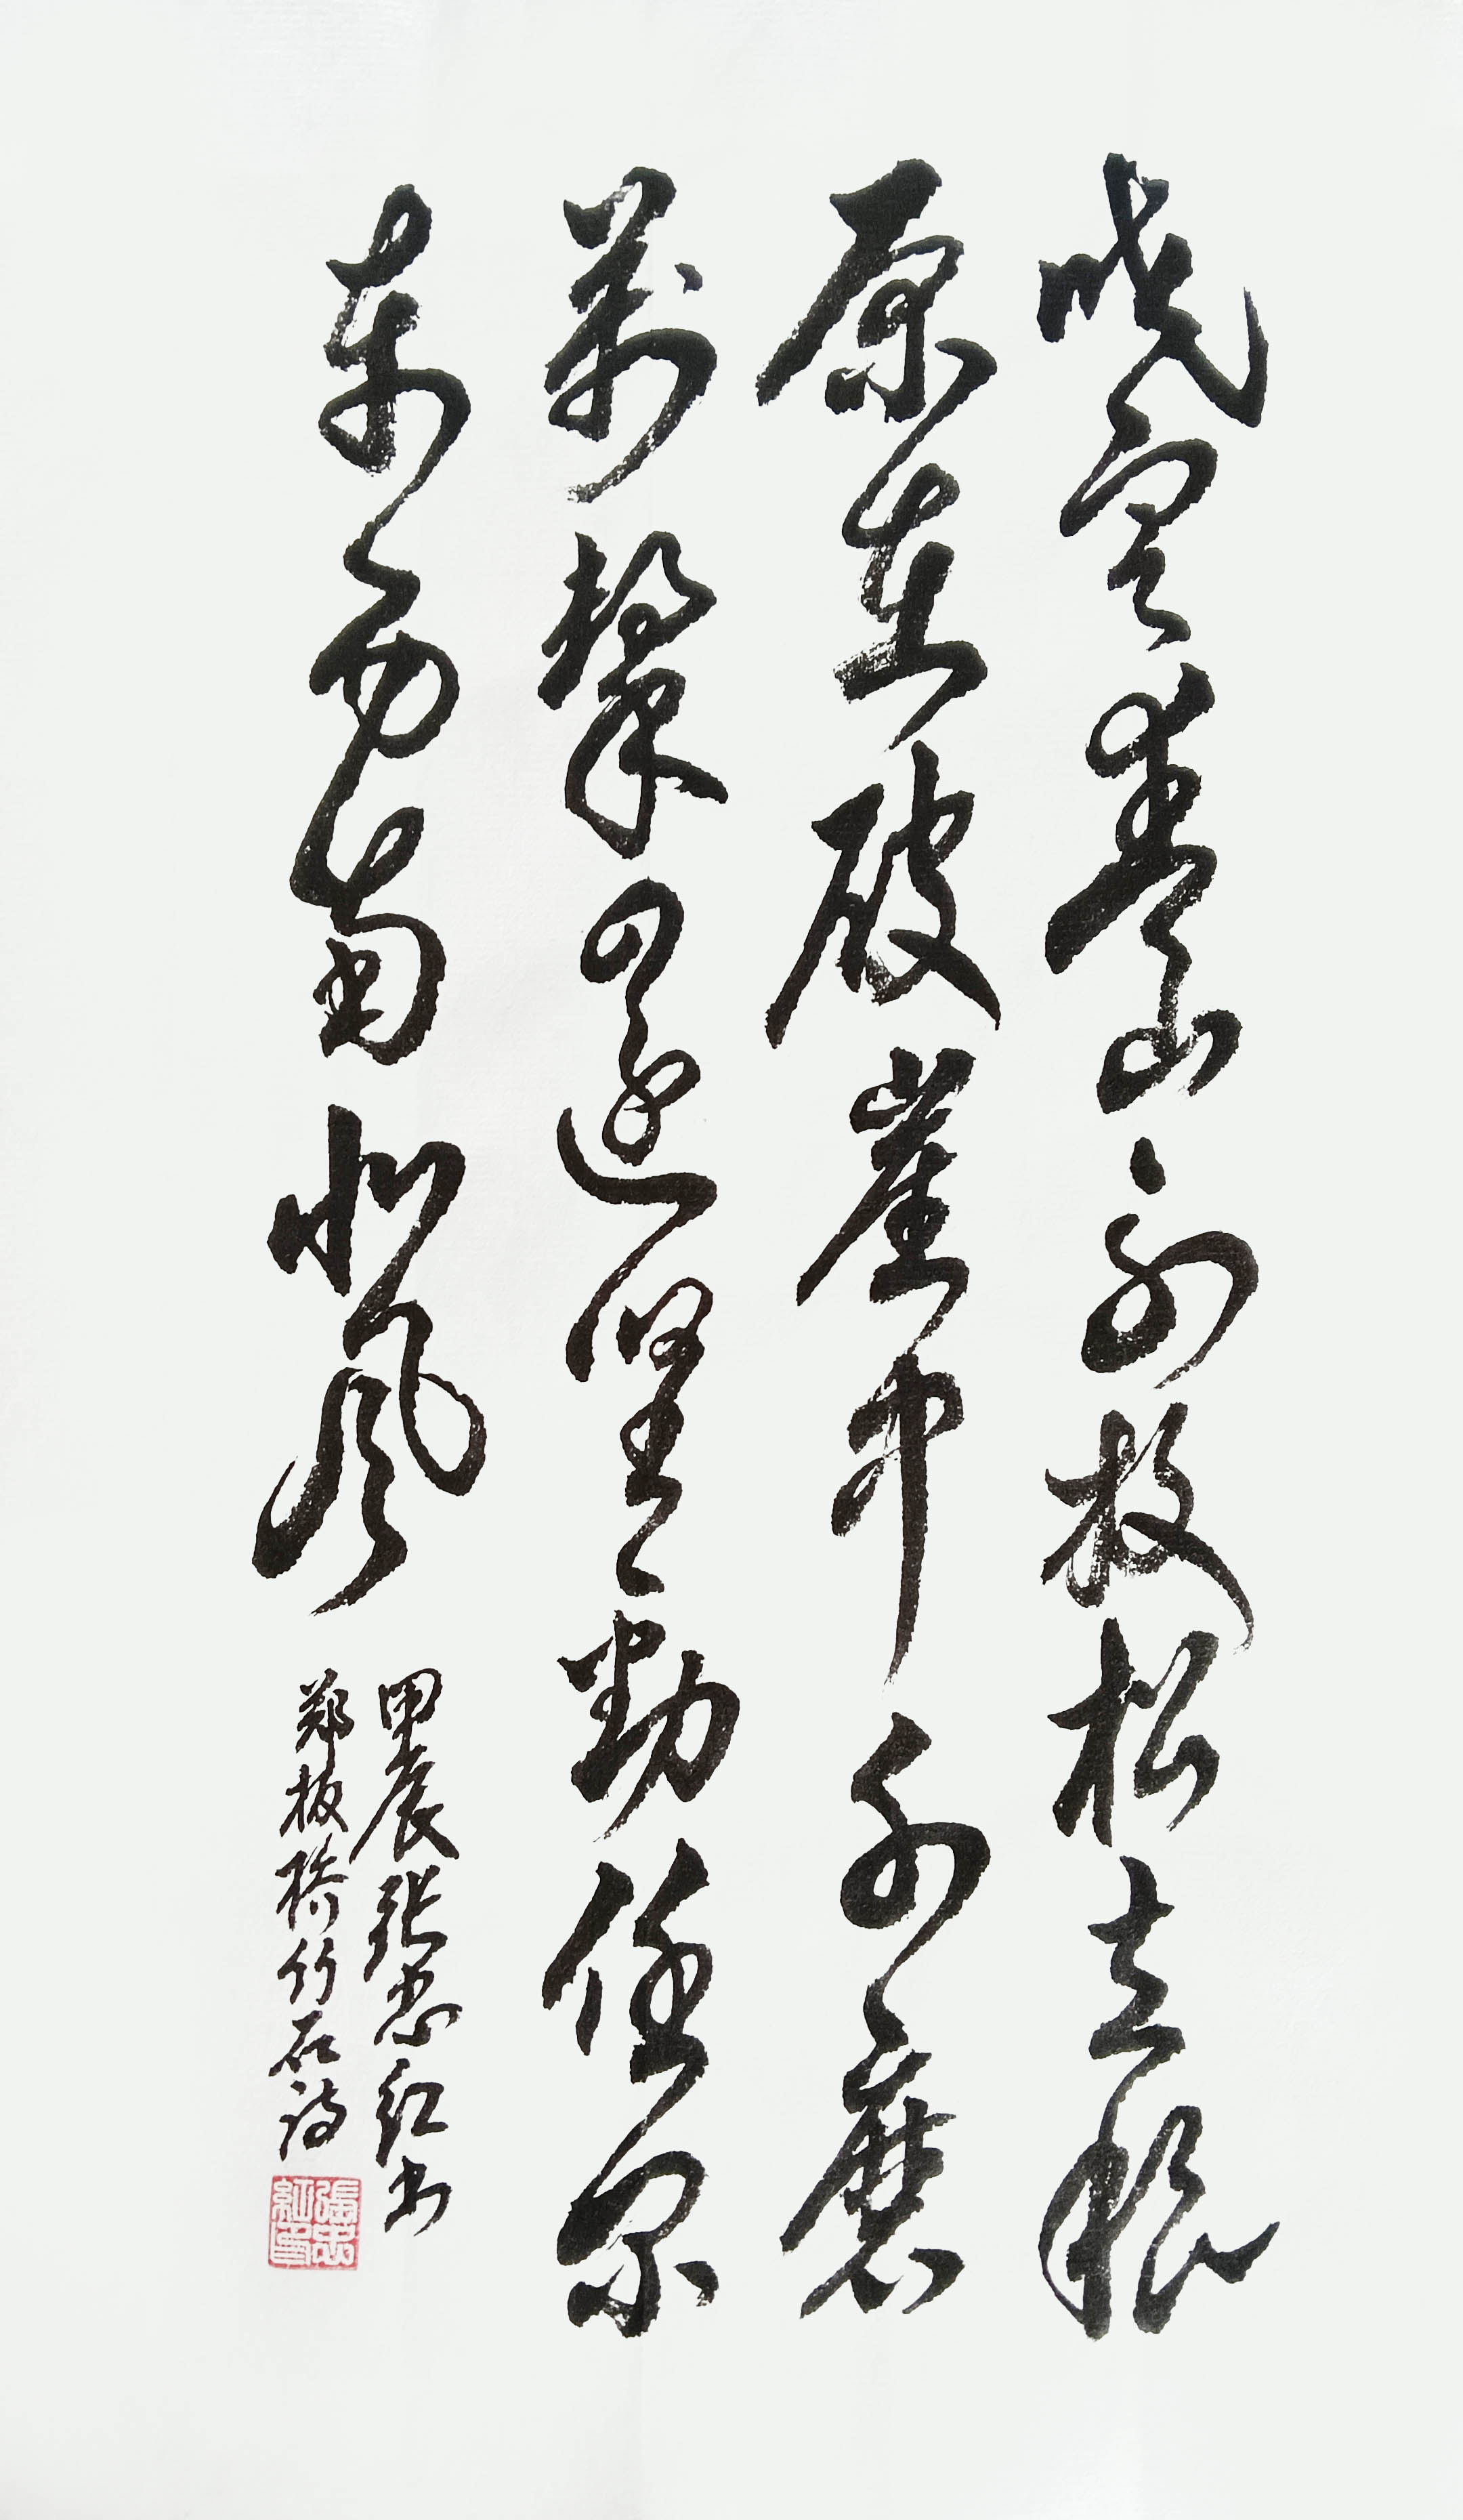 咬定青山不放松立根
原在破崖中千磨
萬擊還堅勁任尔
东西南北风
甲辰张忠红书
郑板桥竹石诗
張忠紅印